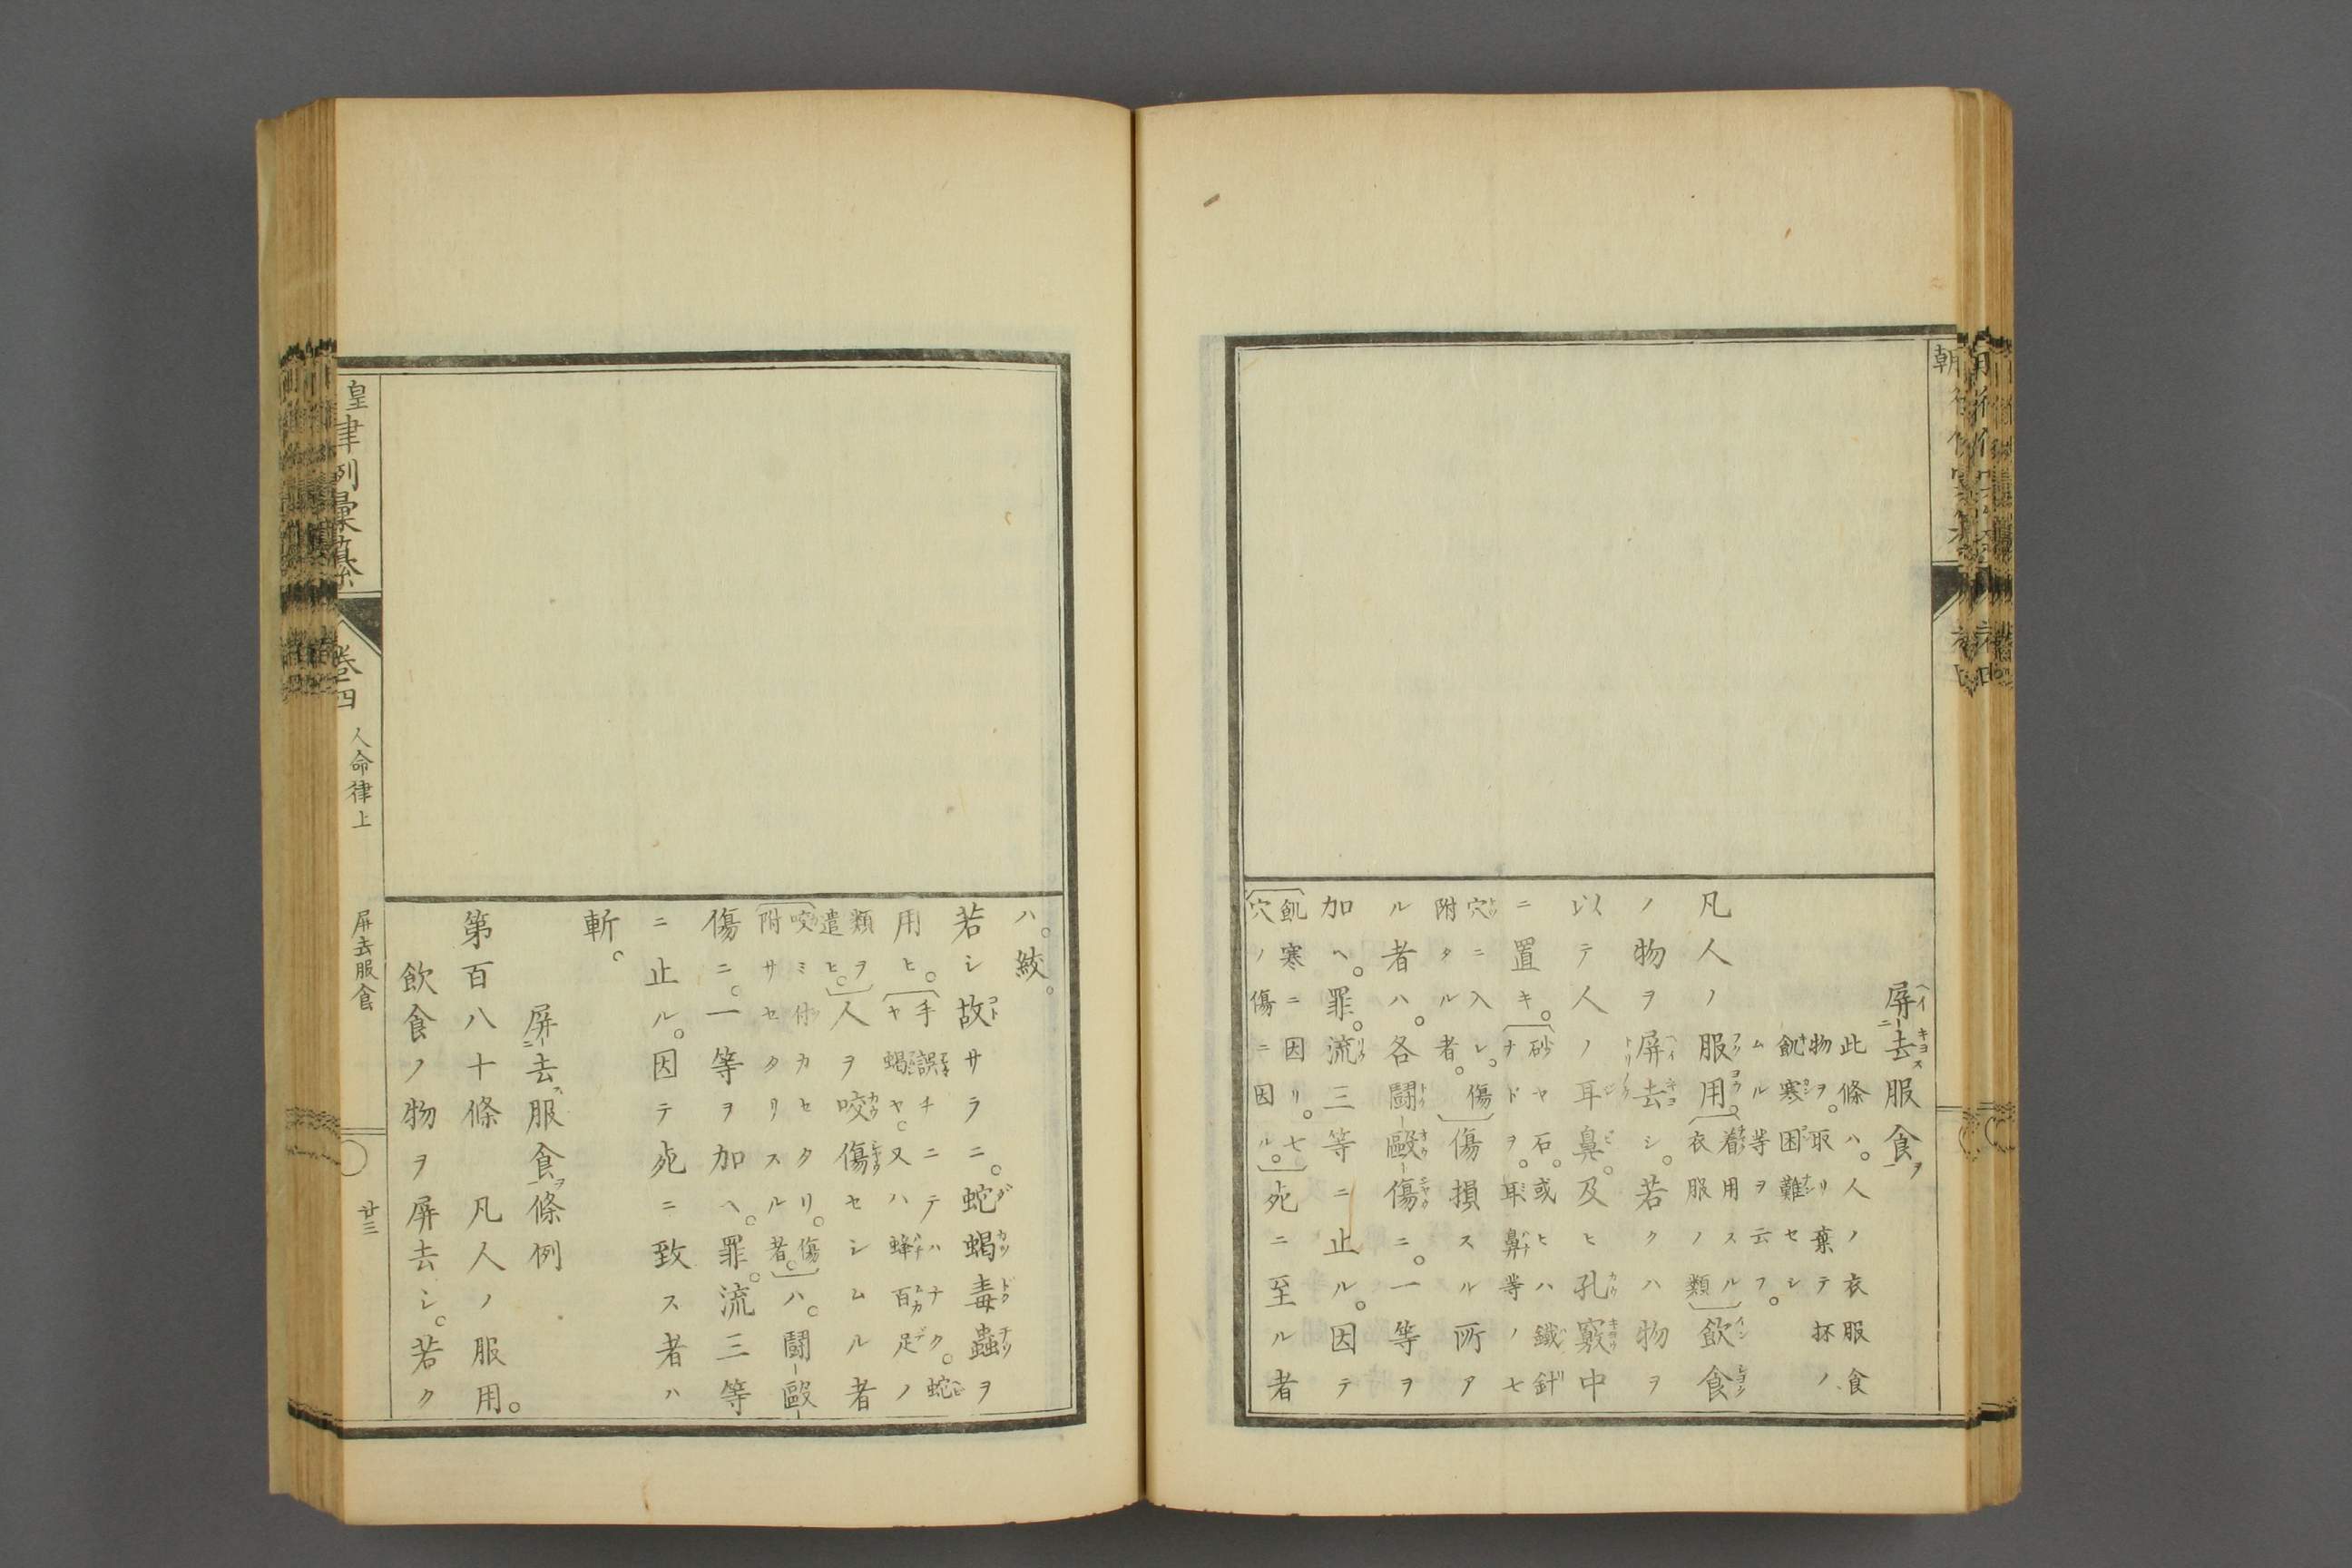 屏去服食
此條ハ。人ノ衣服食
物ヲ。取リ棄テ抔ノ
飢寒困難セシ
ムル等ヲ云フ。
凡人ノ服用。着用スル
衣服ノ類飲食
ノ物ヲ屏去シ。若クハ物ヲ
以テ人ノ耳鼻。及ヒ孔竅中
ニ置キ。砂ヤ石。或ヒハ鐵針
ナドヲ。耳鼻等ノ七
穴ニ入レ。傷
附タル者。傷損スル所ア
ル者ハ。各鬪毆傷ニ。一等ヲ
加ヘ。罪。流三等ニ止ル。因テ
飢寒ニ因リ。七
穴ノ傷ニ因ル。死ニ至ル者
朝
ハ。絞。
若シ故サラニ。蛇蝎毒蟲ヲ
用ヒ。手誤チニテハナク。蛇
ヤ蝎ヤ。又ハ蜂百足ノ
類ヲ
遣ヒ。人ヲ咬傷セシムル者
咬ミ付カセタリ。傷
附サセタリスル者。ハ。鬪毆
傷ニ。一等ヲ加ヘ。罪。流三等
ニ止ル。因テ死ニ致ス者ハ
斬。
屏去服食條例
第百八十條 凡人ノ服用。
飲食ノ物ヲ屏去シ。若ク
皇律例彙纂 卷四 人命律上 屏去服食 廿三